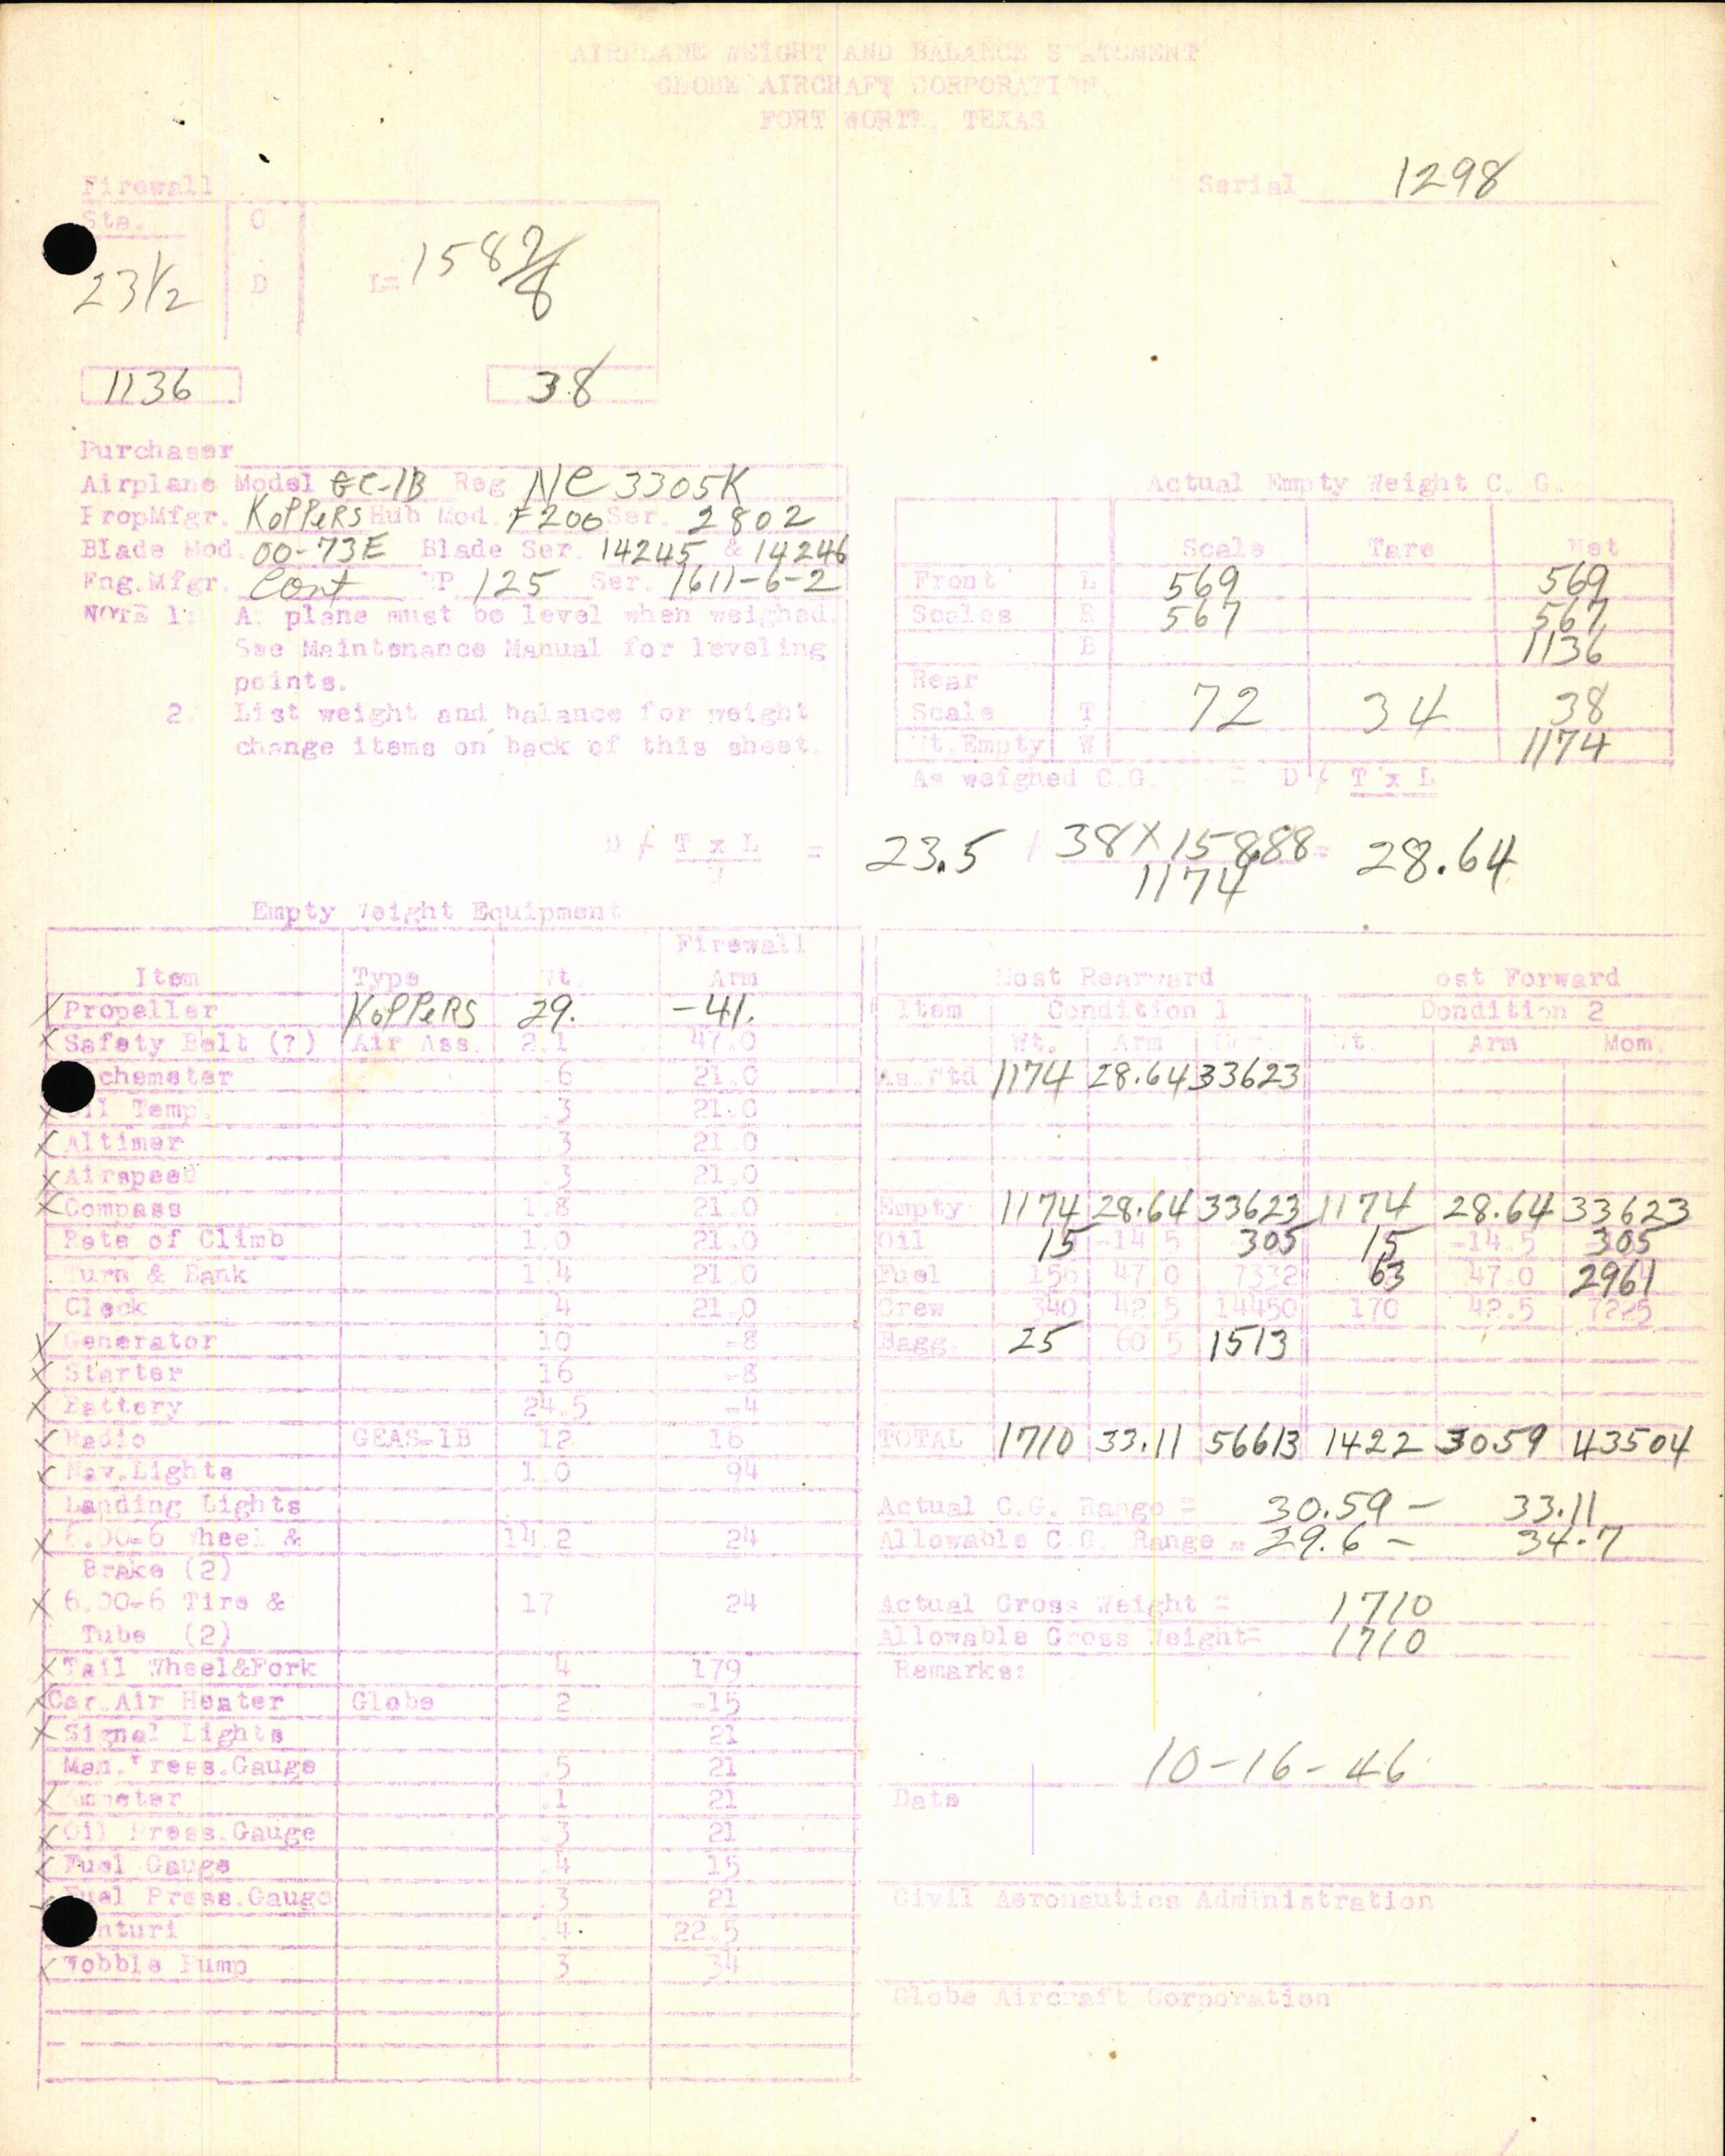 AIRPLANE WEIGHT AND BALANCE STATEMENT
GLOBE AIRCRAFT CORPORATION
FORT WORTH, TEXAS
Serial 1298
Firewall
Sta. O
23 1/2 D L= 158 7/8
1136 38
Purchaser
Airplane Model GC-1B Reg NC 3305K
PropMfgr. KOPPERS Hub Mod. F200 Ser. 2802
Blade Mod. 00-73E Blade Ser. 14245 & 14246
Eng.Mfgr. Cont HP 125 Ser. 1611-6-2
NOTE 1: A plane must be level when weighed.
See Maintenance Manual for leveling
points.
2. List weight and balance for weight
change items on back of this sheet.
Actual Empty Weight C. G.
Scale Tare Net
Front L 569 569
Scales R 567 567
B 1136
Rear
Scale T 72 34 38
Wt.Empty W 1174
As weighed C.G. = D / T x L
D / T x L = 23.5 / 38 X 158.88 = 28.64
1174
Empty Weight Equipment
Item Type Wt. Firewall Arm
X Propeller KOPPERS 29. -41.
X Safety Belt (?) Air Ass. 2.1 47.0
chometer .6 21.0
X Oil Temp. .3 21.0
X Altimer .3 21.0
X Airspeed .3 21.0
X Compass 1.8 21.0
Rate of Climb 1.0 21.0
Turn & Bank 1.4 21.0
Clock .4 21.0
X Generator 10 -8
X Starter 16 -8
X Battery 24.5 -4
X Radio GEAS-1B 12 16
X Nav.Lights 1.0 94
Landing Lights
X 6.00-6 Wheel & 14.2 24
Brake (2)
X 6.00-6 Tire & 17 24
Tube (2)
X Tail Wheel&Fork 4 179
X Car.Air Heater Globe 2 -15
X Signal Lights 21
Man.Press.Gauge .5 21
X Ammeter .1 21
X Oil Press.Gauge .3 21
X Fuel Gauge .4 15
X Fuel Press.Gauge .3 21
enturi .4 22.5
X Wobble Pump 3 34
Most Rearward Most Forward
Item Condition 1 Condition 2
Wt. Arm Mom. Wt. Arm Mom.
As.Wtd 1174 28.64 33623
Empty 1174 28.64 33623 1174 28.64 33623
Oil 15 -14.5 305 15 -14.5 305
Fuel 156 47.0 7332 63 47.0 2961
Crew 340 42.5 14450 170 42.5 7225
Bagg. 25 60.5 1513
TOTAL 1710 33.11 56613 1422 3059 43504
Actual C.G. Range = 30.59 - 33.11
Allowable C.G. Range = 29.6 - 34.7
Actual Gross Weight = 1710
Allowable Gross Weight= 1710
Remarks:
10-16-46
Date
Civil Aeronautics Administration
Globe Aircraft Corporation